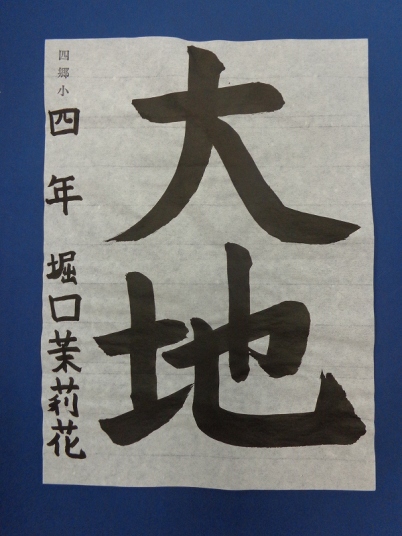 大地
四郷小
四年 堀口茉莉花